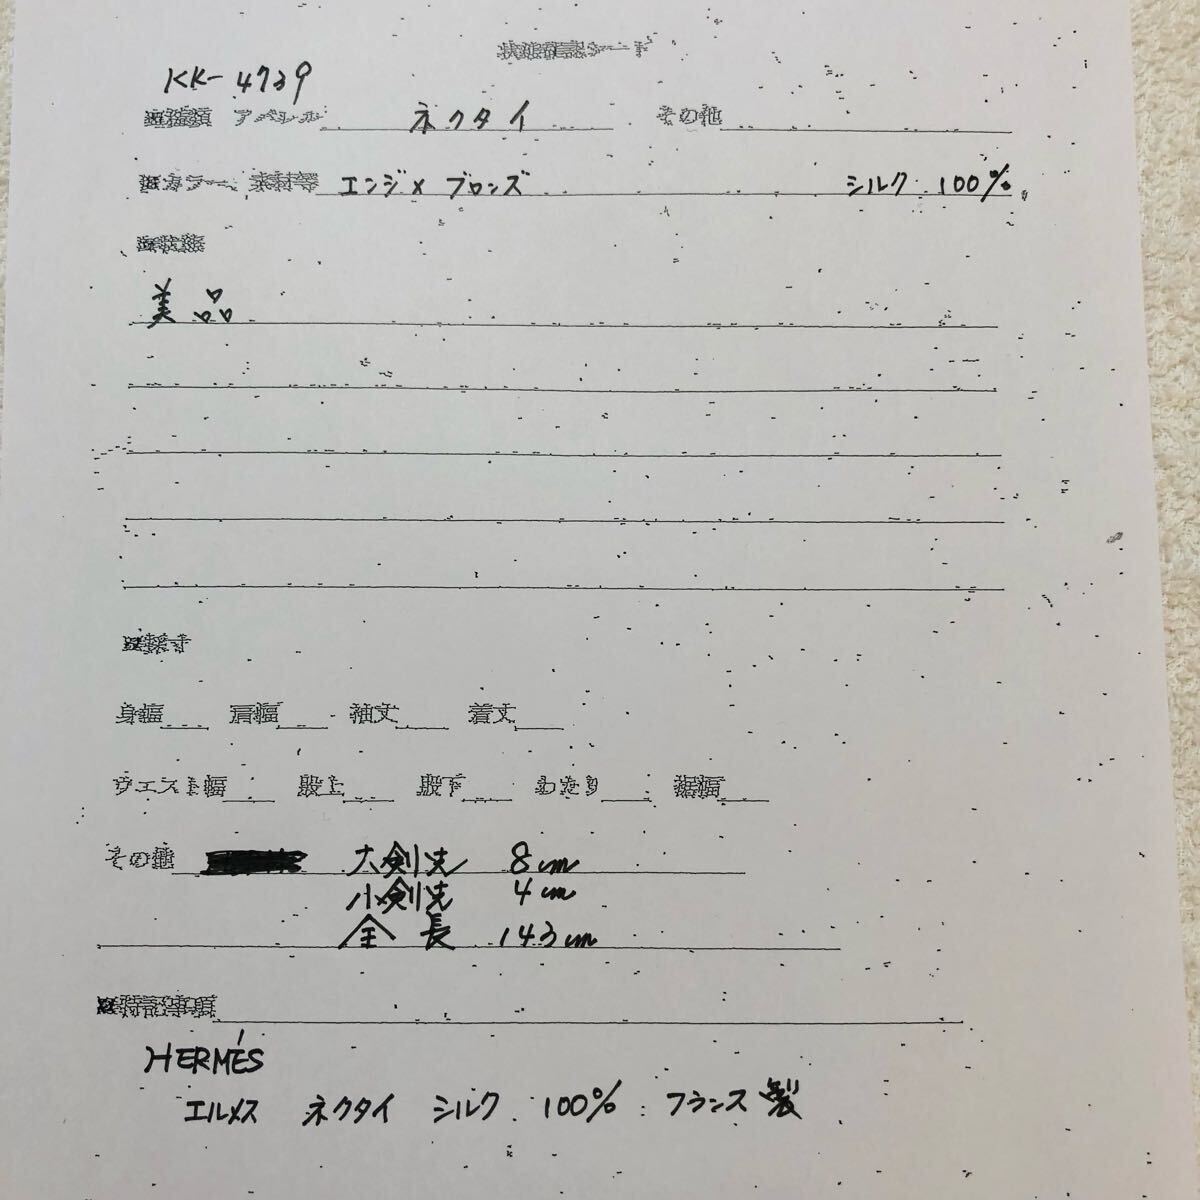 状態確認シート
KK-4729
※種類 アパレル ネクタイ その他
※カラー、素材等 エンジ×ブロンズ シルク 100%
※状態
美品
※採寸
身幅 肩幅 袖丈 着丈
ウエスト幅 股上 股下 わたり 裾幅
その他 大剣先 8cm
小剣先 4cm
全長 143cm
※特記事項
HERMÉS
エルメス ネクタイ シルク 100% フランス製